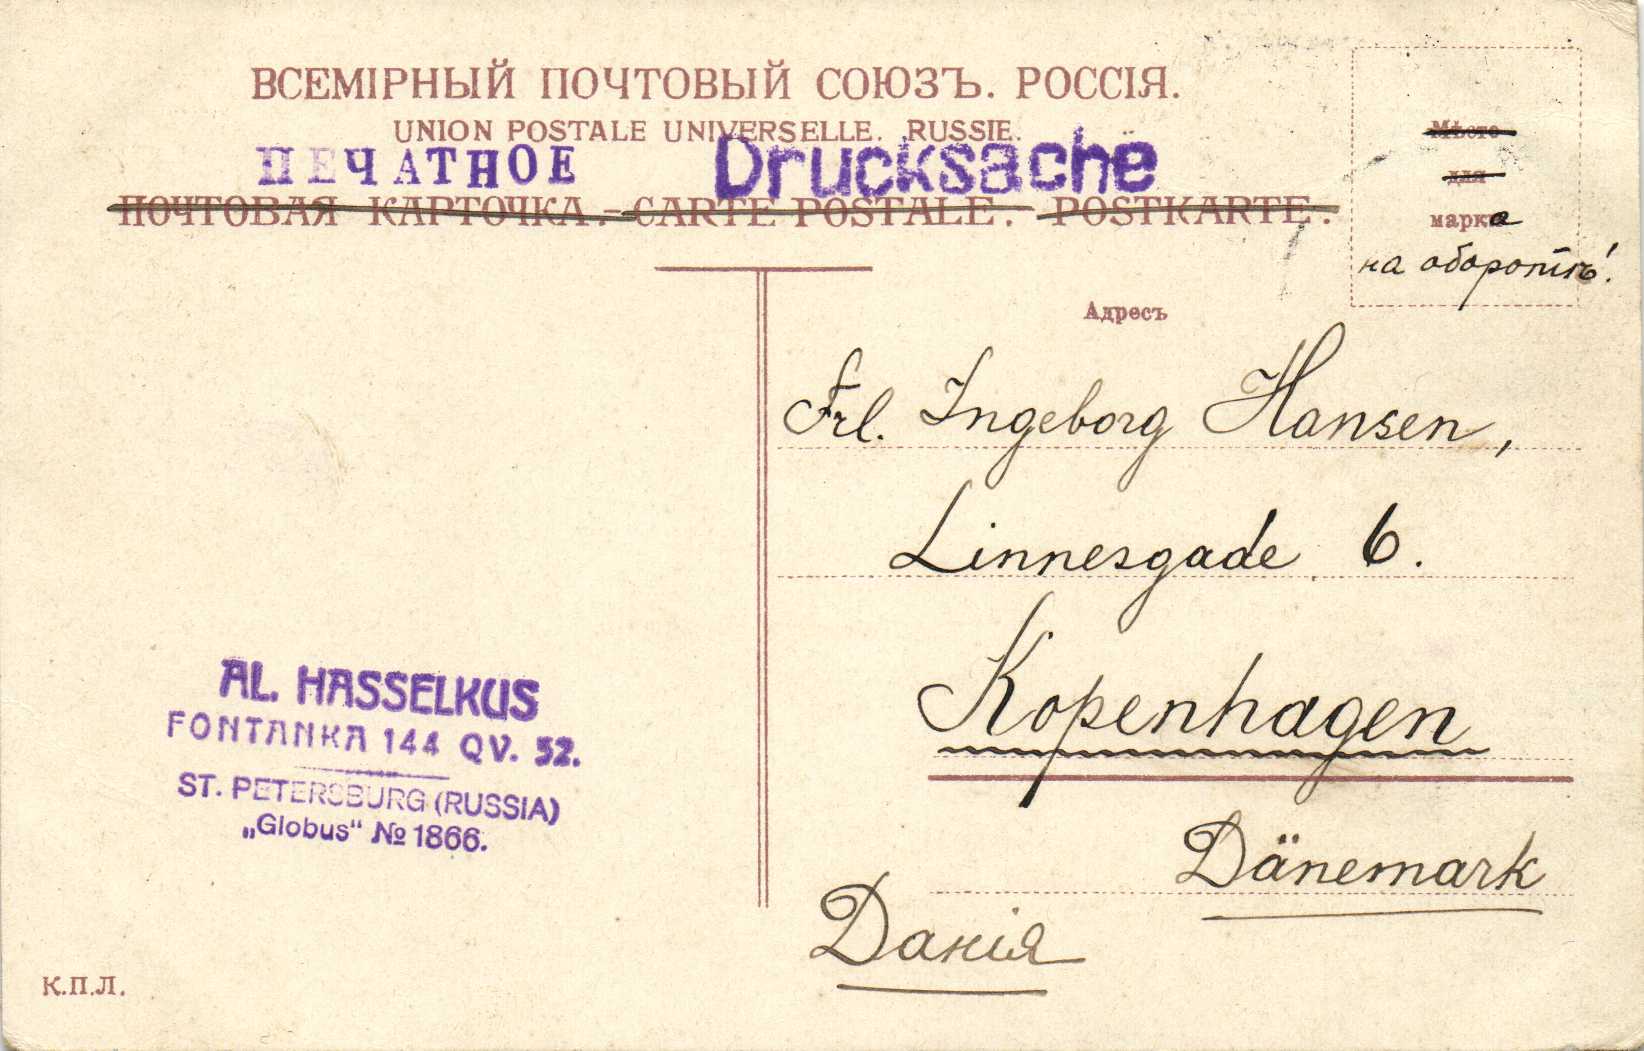 ВСЕМІРНЫЙ ПОЧТОВЫЙ СОЮЗЪ. РОССІЯ.
UNION POSTALE UNIVERSELLE. RUSSIE.
ПЕЧАТНОЕ Drucksache
ПОЧТОВАЯ КАРТОЧКА. – CARTE POSTALE. – POSTKARTE.
Мѣсто
для
марка
на оборотѣ!
Адресъ
Frl. Ingeborg Hansen,
Linnesgade 6.
Kopenhagen
Dänemark
Данія
AL. HASSELKUS
FONTANKA 144 QV. 52.
ST. PETERSBURG (RUSSIA)
„Globus“ № 1866.
К.П.Л.